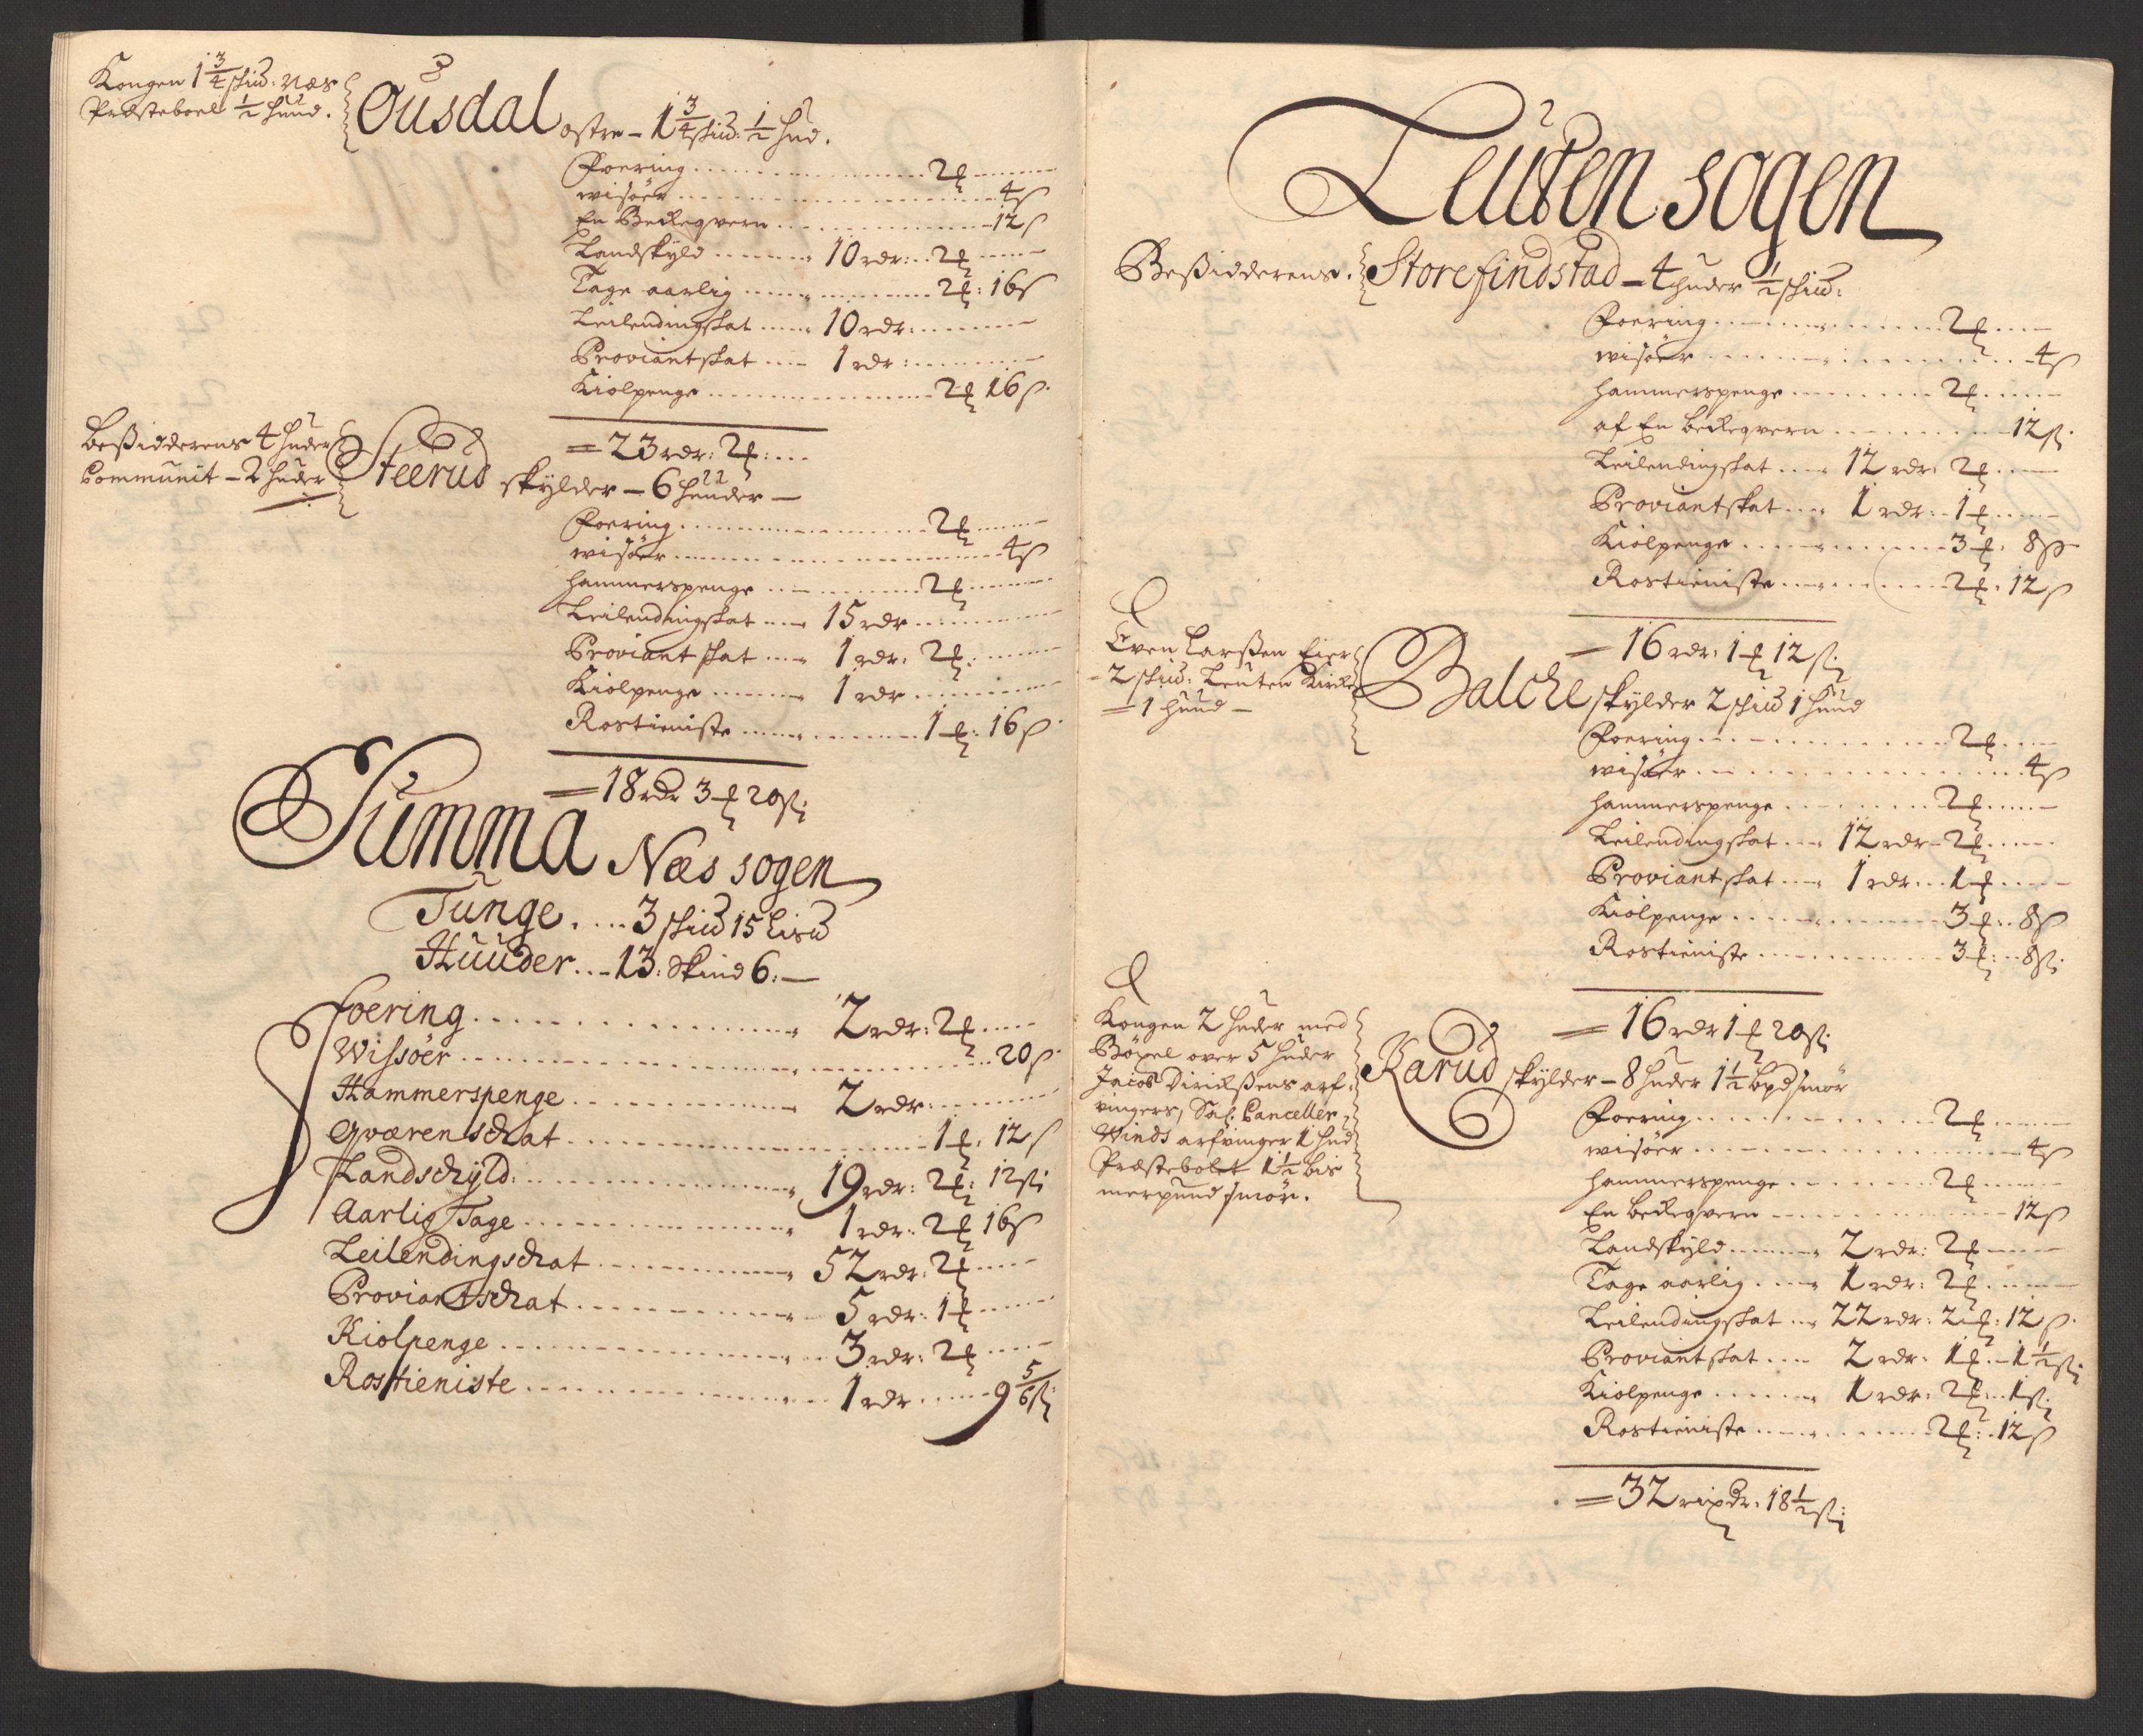 Kongen 1 3/4 skud: Næs
Præsteboel 1/2 hund.
Ousdal ostre - 1 3/4 skud: 1/2 hud.
Foering 2 ƒ
wisøer 4 ß
En Beckeqvern 12 ß
Landskyld 10 rdr: 2 ƒ
Tage aarlig 2 ƒ: 16 ß
Leilendingskat 10 rdr:
Proviantskat 1 rdr:
Kiolpenge 2 ƒ 16 ß.
= 23 rdr: 2 ƒ:
Beßidderens 4 huder
Communit - 2 huder
Steerud skylder - 6 huuder -
Foering 2 ƒ
wisøer 4 ß
hammerspenge 2 ƒ
Leilendingskat 15 rdr
Proviant skat 1 rdr. 2 ƒ.
Kiolpenge 1 rdr
Rostieniste 1 ƒ: 16 ß.
= 18 rdr 3 ƒ 20 ß;
Summa Næs sogen
Tunge 3 skud 15 Lisd
Huuder 13: Skind 6: -
foering 2 rdr: 2 ƒ
Wissøer 20 ß.
Hammerspenge 2 rdr:
Qværenschat 1 ƒ. 12 ß
Landschyld: 19 rdr: 2 ƒ: 12 ß;
Aarlig Tage 1 rdr: 2 ƒ 16 ß
Leilendingschat 52 rdr: 2 ƒ
Proviantschat 5 rdr: 1 ƒ
Kiolpenge 3 rdr: 2 ƒ
Rostieniste 1 rdr 9 5/6 ß;
Leuten sogen
Beßidderens. Storefindstad - 4 huder 1/2 skud:
Foering 2 ƒ
wisøer 4 ß
hammerspenge 2 ƒ
af En beckeqvern 12 ß.
Leilendingskat 12 rdr: 2 ƒ
Proviantskat 1 rdr: 1 ƒ
Kiolpenge 3 ƒ. 8 ß
Rostieniste 2 ƒ. 12 ß
= 16 rdr: 1 ƒ 12 ß;
Even Larßen Eier
- 2 skud: Leuten Kircke
= 1 huud -
Balche skylder 2 skud 1 huud
Foering 2 ƒ
wisøer 4 ß
hammerspenge 2 ƒ
Leilendingskat 12 rdr - 2 ƒ
Proviantskat 1 rdr 1 ƒ
Kiolpenge 3 ƒ: 8 ß
Rostieniste 3 ƒ: 8 ß;
= 16 rdr 1 ƒ 20 ß;
Kongen 2 huder med
Böxel over 5 huder
Jacob Dirickßens arf-
vingers, Sal: Canceller
Winds arfvinger 1 hud
Præstebolet 1 1/2 bis
merpund smör.
Karud skylder - 8 huder 1 1/2 bpd smör
Foering 2 ƒ
wisøer 4 ß
hammerspenge 2 ƒ
En beckeqvern 12 ß
Landskyld 2 rdr: 2 ƒ
Tage aarlig 1 rdr: 2 ƒ
Leilendingskat 22 rdr: 2 ƒ: 12 ß.
Proviantskat 2 rdr: 1 ƒ - 1 1/2 ß;
Kiolpenge 1 rdr: 2 ƒ: 1 ß;
Rostieniste 2 ƒ: 12 ß
= 32 rixdr. 18 1/2 ß;